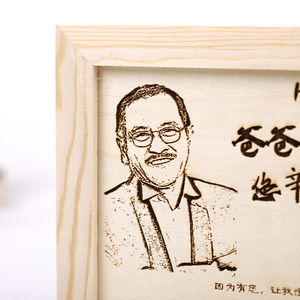 爸爸
您辛
因为有您，让我